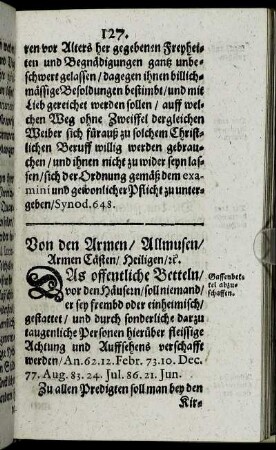 127.
ren vor Alters her gegebenen Freyhei-
ten und Begnädigungen gantz unbe-
schwert gelassen / dagegen ihnen billich-
mässige Besoldungen bestimbt / und mit
Lieb gereichet werden sollen / auff wel-
chen Weg ohne Zweiffel dergleichen
Weiber sich fürauß zu solchem Christ-
lichen Beruff willig werden gebrau-
chen / und ihnen nicht zu wider seyn las-
sen / sich der Ordnung gemäß dem exa-
mini und gewonlicher Pflicht zu unter-
geben / Synod. 648.
Von den Armen / Allmusen /
Armen Cästen / Heiligen / ꝛc.
DAs offentliche Betteln /
vor den Häusern / soll niemand /
er sey frembd oder einheimisch /
gestattet / und durch sonderliche darzu
taugenliche Personen hierüber fleissige
Achtung und Auffsehens verschafft
werden / An. 62. 12. Febr. 73. 10. Dec.
77. Aug. 83. 24. Jul. 86. 21. Jun.
Gassenbet-
tel abzu-
schaffen.
Zu allen Predigten soll man bey den
Kir-